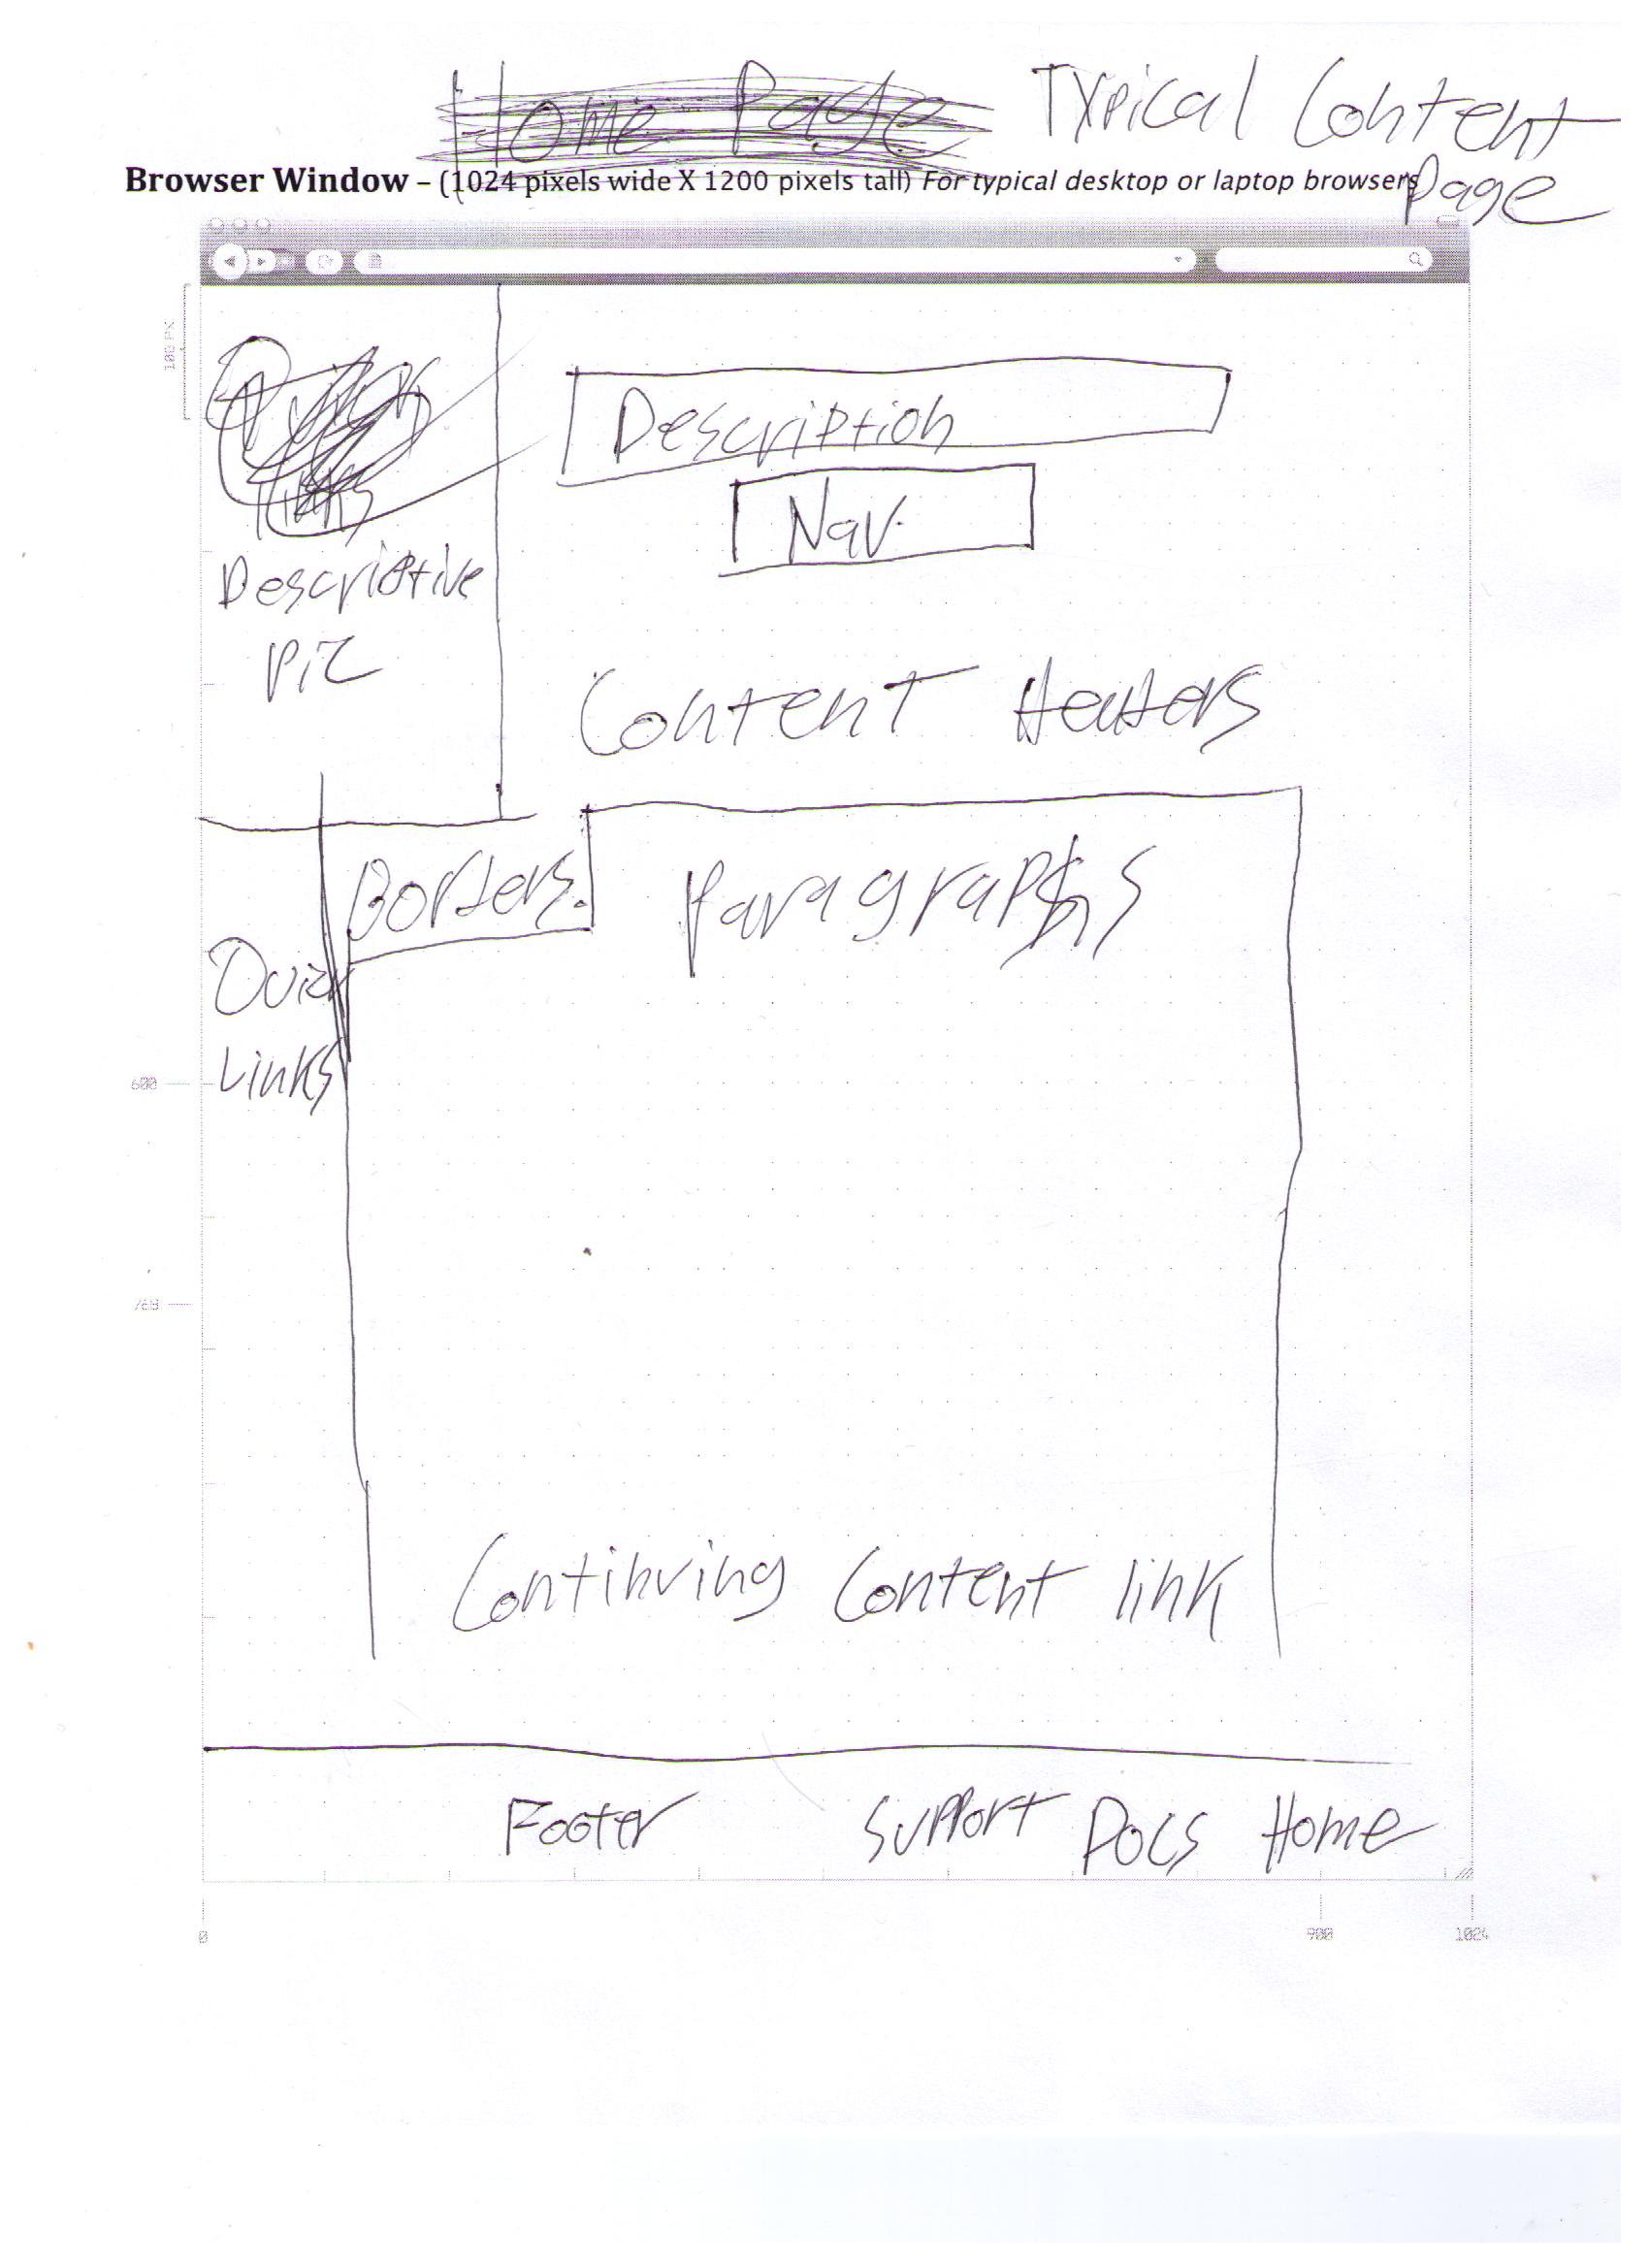 Home Page Typical Content
Page
Browser Window – (1024 pixels wide X 1200 pixels tall) For typical desktop or laptop browsers
100 PX
Description
Nav.
Descriptive
Pic
Content Headers
Borders.
Paragraphs
Quick
Links
600
768
Continuing Content link
Footer Support Docs Home
0 900 1024